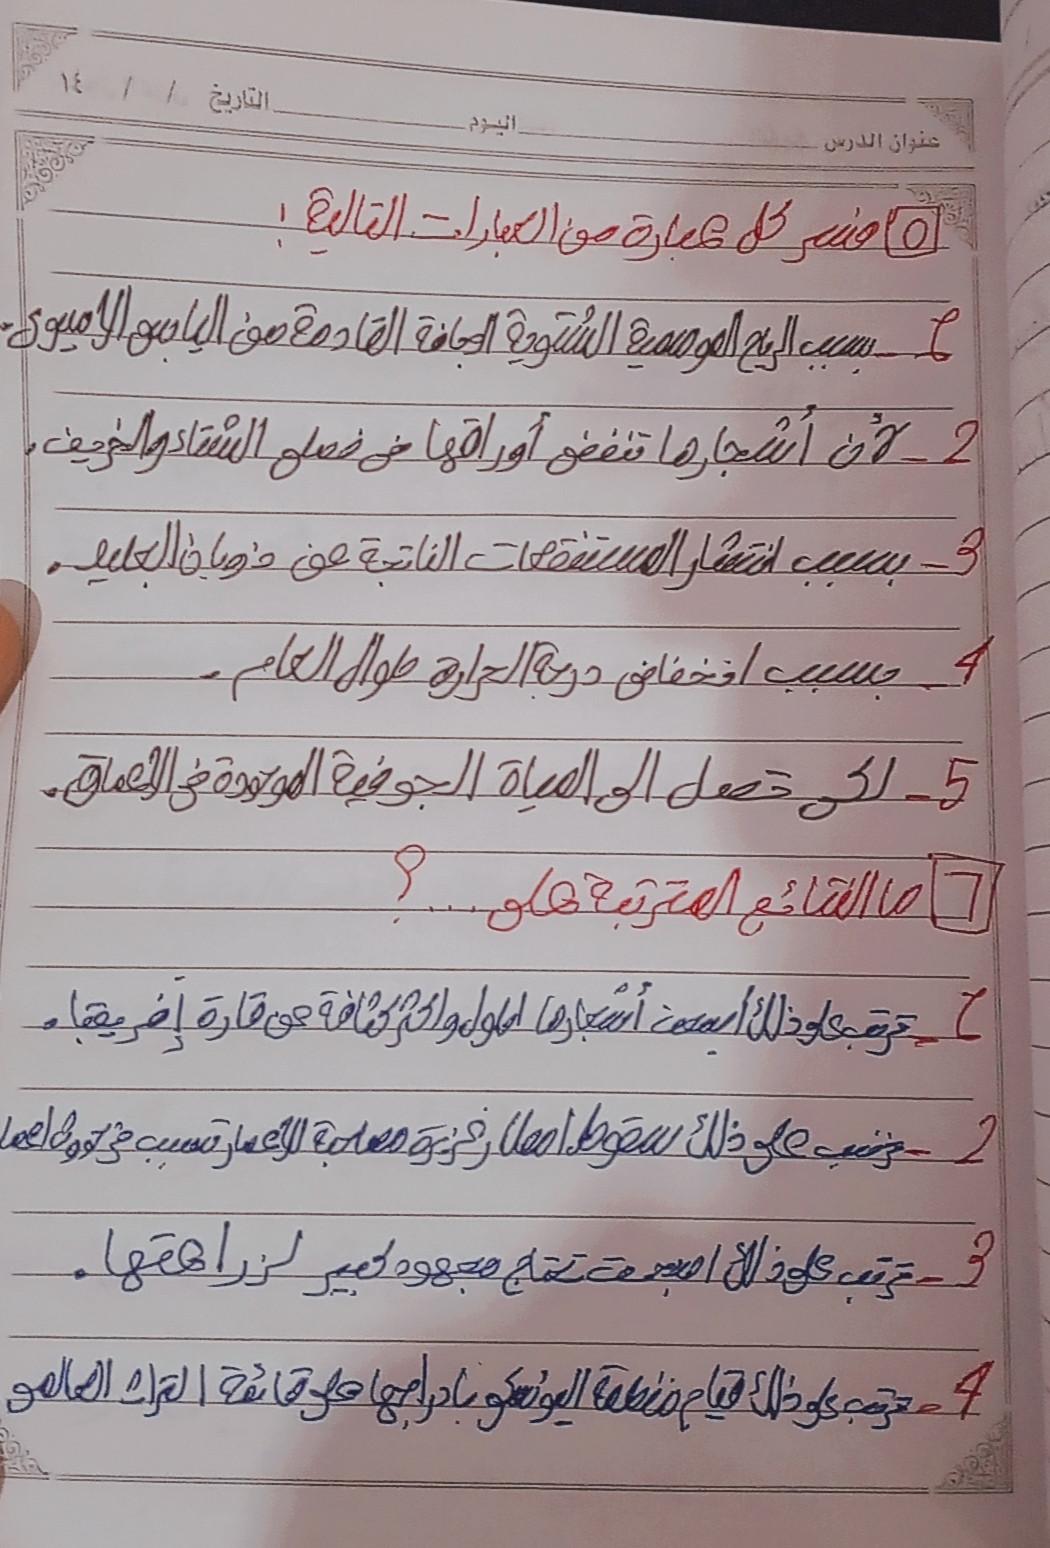 عنوان الدرس اليوم التاريخ / / ١٤
٥ فسر كل عبارة من العبارات التالية :
1 - بسبب الرياح الموسمية الشتوية الجافة القادمة من اليابس الآسيوي.
2 - لأن أشجارها تنفض أوراقها في فصلي الشتاء والخريف.
3 - بسبب انتشار المستنقعات الناتجة عن ذوبان الجليد.
4 - بسبب انخفاض درجة الحرارة طوال العام.
5 - لكي تصل الى المياة الجوفية الموجودة في الأعماق.
٦ ما النتائج المترتبة على ....؟
1 - ترتب على ذلك أصبحت أشجارها اطول واكثر كثافة عن قارة إفريقيا.
2 - ترتب على ذلك سقوط امطار غزيرة مصاحبة الأعصار تسبب في
3 - ترتب على ذلك اصبحت تحتاج مجهود كبير لزراعتها.
4 - ترتب على ذلك قيام منظمة اليونسكو بادراجها على قائمة التراث العالمي